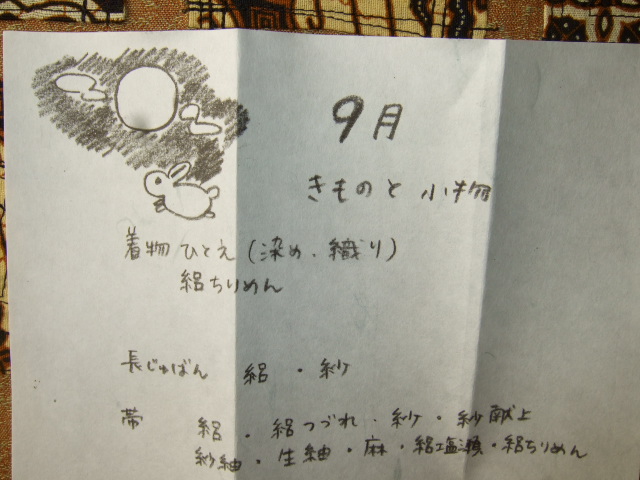 9月
きものと小物
着物 ひとえ (染め・織り)
絽ちりめん
長じゅばん 絽・紗
帯 絽・絽つづれ・紗・紗献上
紗紬・生紬・麻・絽塩瀬・絽ちりめん